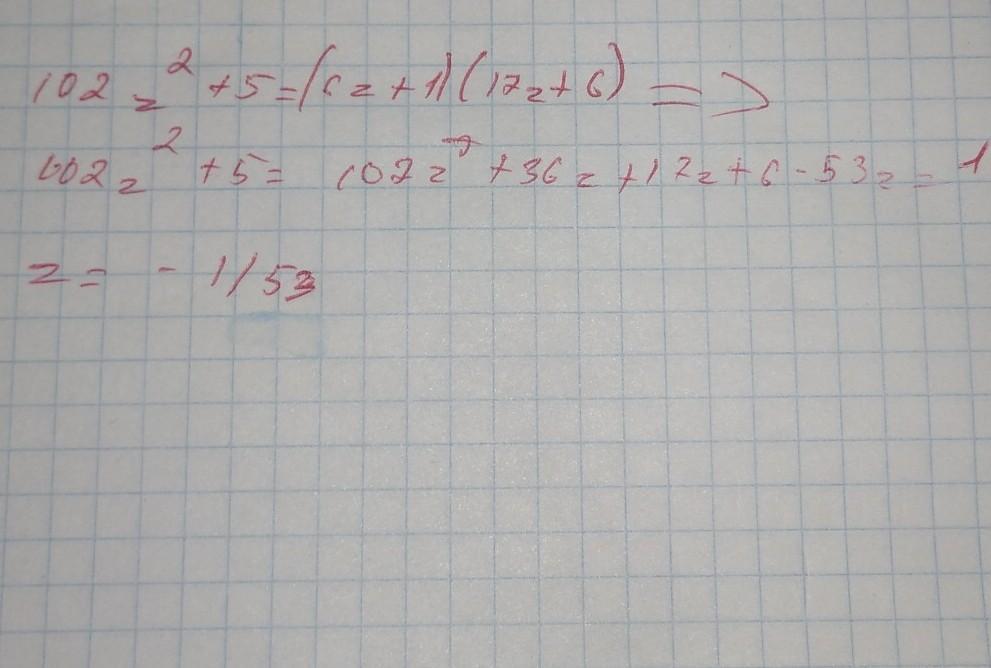 102z² + 5 = (6z + 1)(17z + 6) =>
102z² + 5 = 102z² + 36z + 17z + 6 - 53z = 1
z = - 1/53